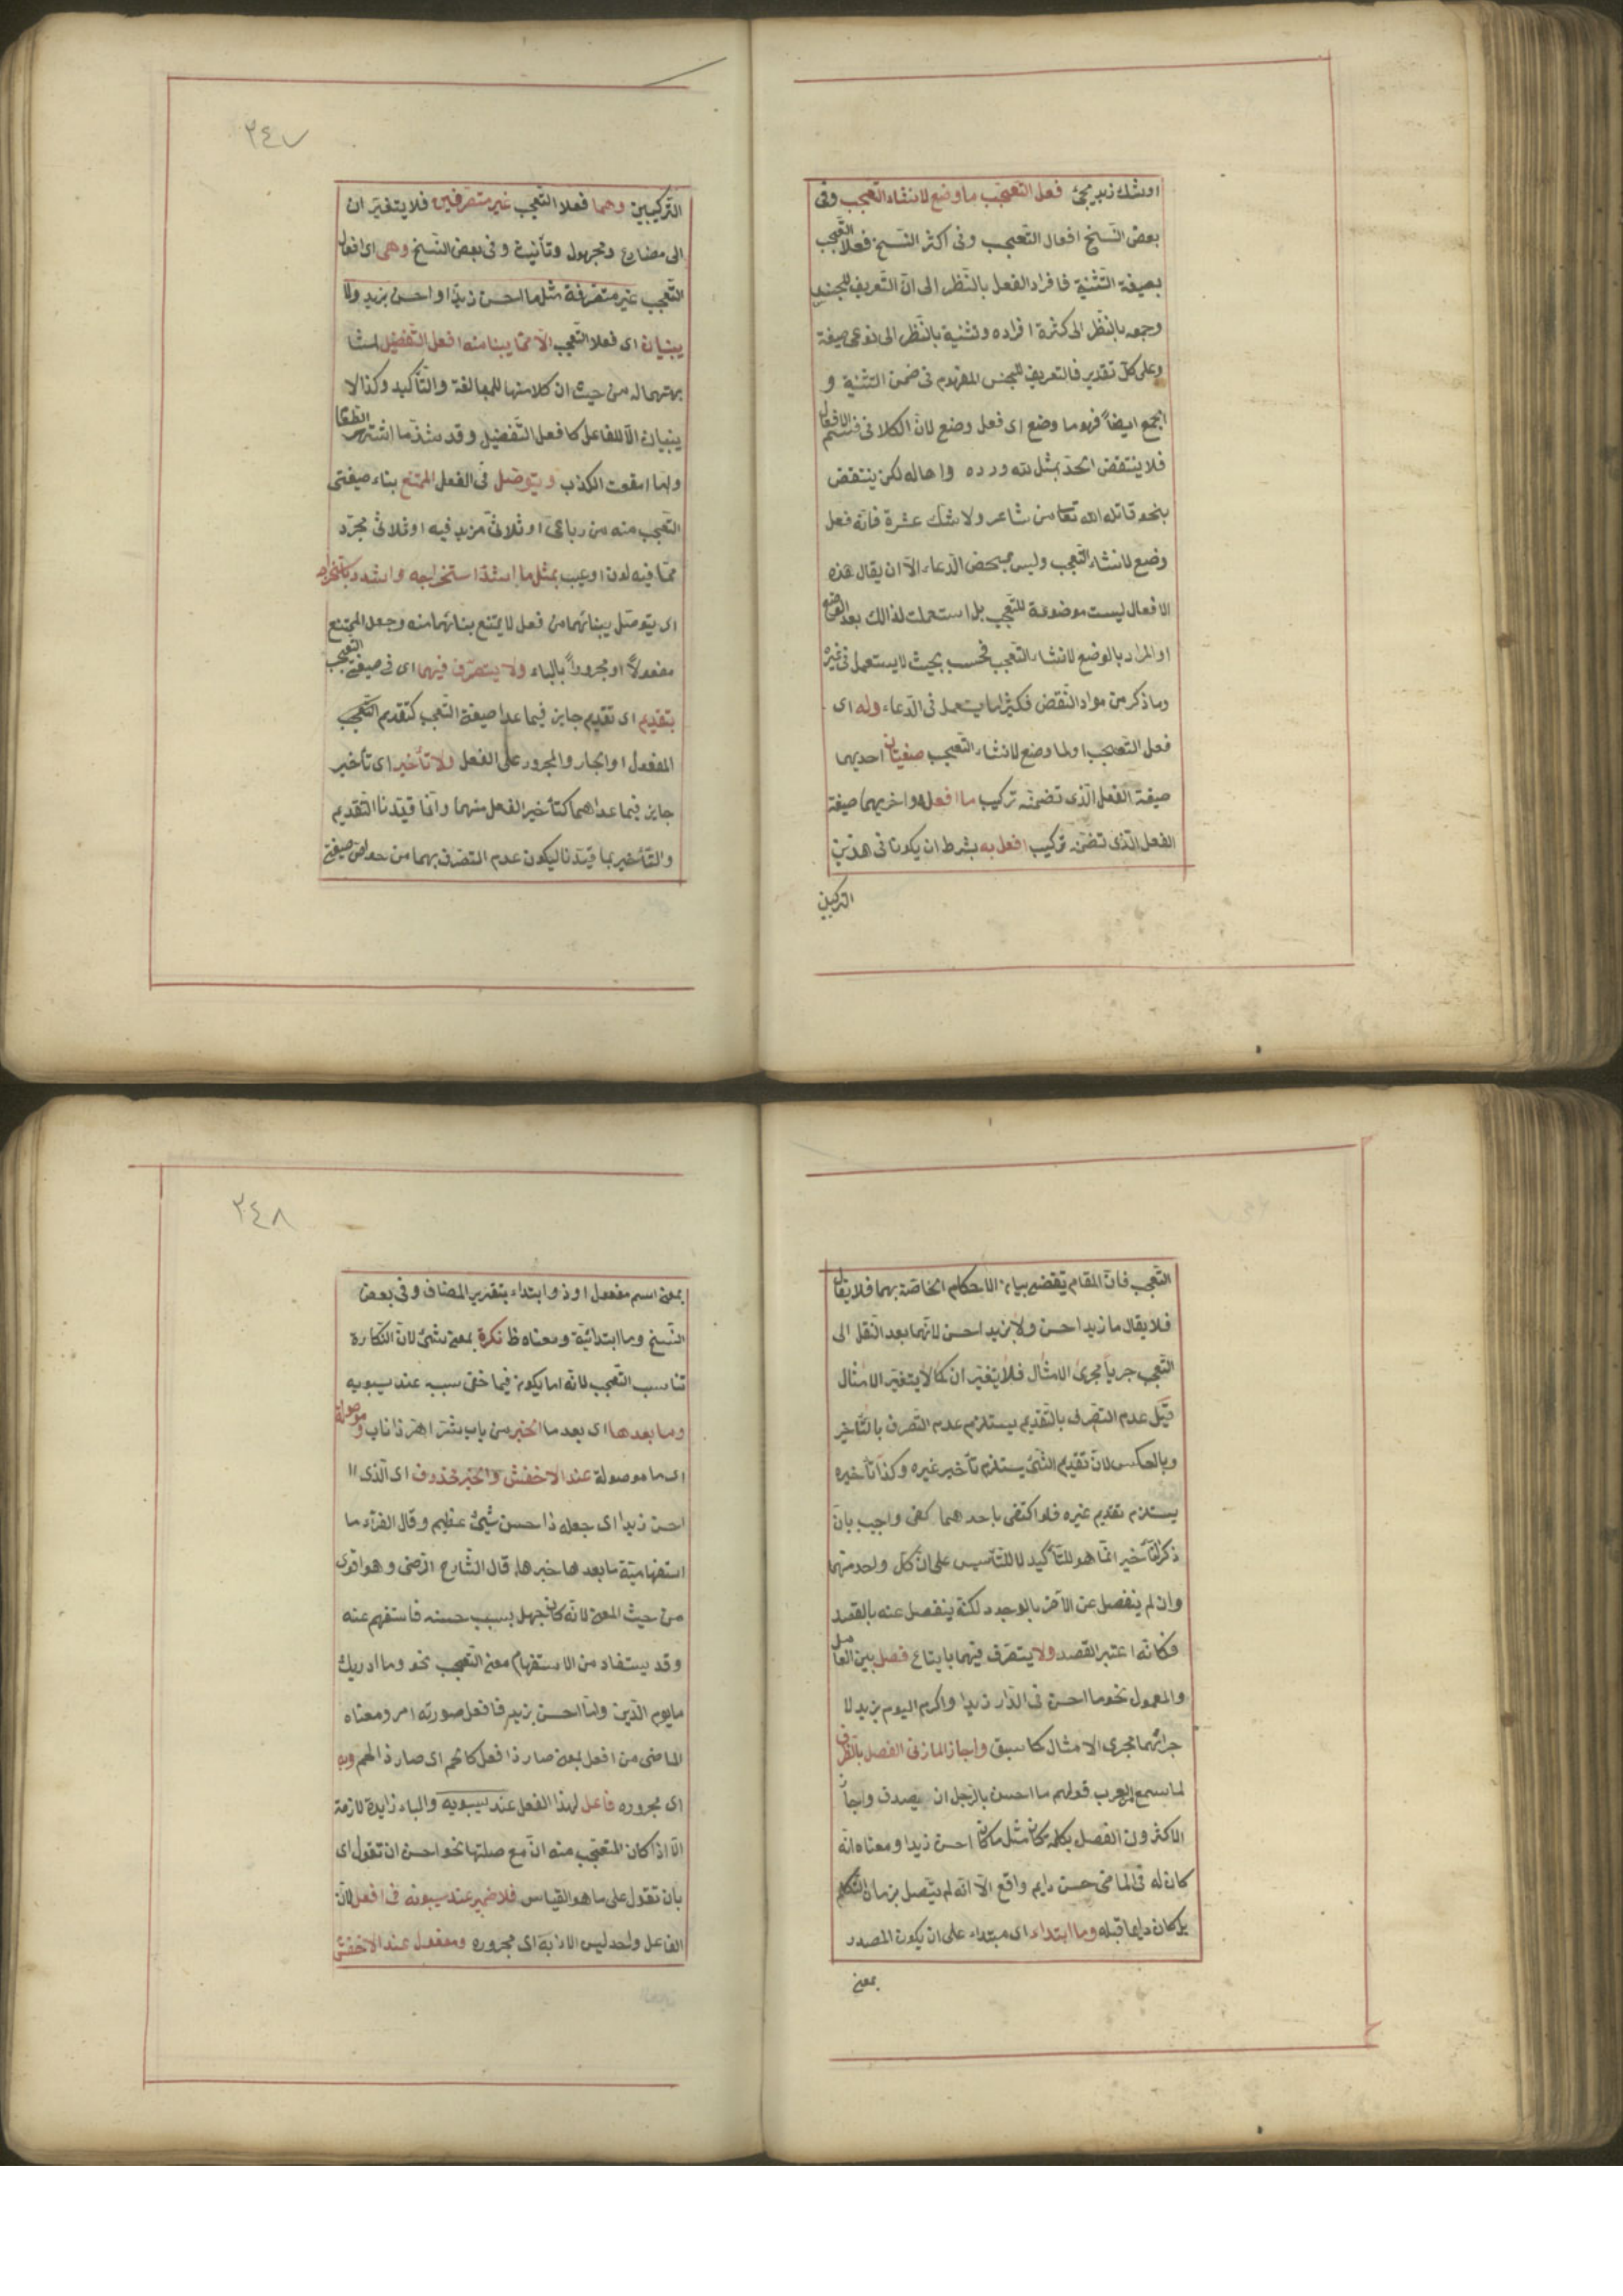 اوشك زيد يجئ فعل التعجب ما وضع لانشاء التعجب وفى
بعض النسخ افعال التعجب وفى اكثر النسخ فعلا التعجب
بصيغة التثنية فافراد الفعل بالنظر الى ان التعريف للجنس
وجمعه بالنظر الى كثرة افراده وتثنية بالنظر الى نوعى صيغة
وعلى كل تقدير فالتعريف للجنس المفهوم فى ضمن التثنية و
الجمع ايضاً فهو ما وضع اى فعل وضع لان الكلام فى قسم الافعال
فلا ينتقض الحد بمثل لله دره واها له لكن ينتقض
بنحو قاتله الله تعا من شاعر ولا شك عشرة فانه فعل
وضع لانشاء التعجب وليس بمحض الدعاء الا ان يقال هذه
الافعال ليست موضوعة للتعجب بل استعملت لذالك بعد الوضع
او المراد بالوضع لانشاء التعجب فحسب بحيث لا يستعمل فى غيره
وما ذكر من مواد النقض فكثيرا ما يستعمل فى الدعاء وله اى
فعل التعجب او لما وضع لانشاء التعجب صيغتان احديهما
صيغة الفعل الذى تضمنه تركيب ما افعله واخريهما صيغة
الفعل الذى تضمنه تركيب افعل به بشرط ان يكونا فى هذين
التركيبين
٢٤٧
التركيبين وهما فعلا التعجب غير متصرفين فلا يتغيران
الى مضارع ومجهول وتأنيث وفى بعض النسخ وهى اى افعال
التعجب غير متصرفة مثل ما احسن زيدا واحسن بزيد ولا
يبنيان اى فعلا التعجب الا مما يبنا منه افعل التفضيل لمشا
بهتهما له من حيث ان كلا منهما للمبالغة والتأكيد وكذا لا
يبنيان الا للفاعل كافعل التفضيل وقد شذ ما اشتهر
وما امقت الكذب ويتوصل فى الفعل الممتنع بناء صيغتى
التعجب منه من رباعى او ثلاثى مزيد فيه او ثلاثى مجرد
مما فيه لون او عيب بمثل ما اشد استخراجه واشدد باستخراجه
اى يتوصل ببنائهما من فعل لا يمتنع بنائهما منه وجعل الممتنع
مفعولاً او مجروراً بالباء ولا يتصرف فيهما اى فى صيغتى التعجب
بتقديم اى تقديم جايز فيما عدا صيغة التعجب كتقديم
المفعول او الجار والمجرور على الفعل ولا تأخير اى تأخير
جايز فيما عداهما كتأخير الفعل منهما وانما قيدنا التقديم
والتأخير بما قيدنا ليكون عدم التصرف بهما من خواص صيغة
التعجب فان المقام يقتضى بيان الاحكام الخاصة بهما فلا يقال
فلا يقال ما زيدا احسن ولا بزيد احسن لانهما بعد النقل الى
التعجب جريا مجرى الامثال فلا يتغيران كما لا يتغير الامثال
قيل عدم التصرف بالتقديم يستلزم عدم التصرف بالتأخير
وبالعكس لان تقديم الشئ يستلزم تأخير غيره وكذا تأخيره
يستلزم تقديم غيره فلو اكتفى باحدهما كفى واجيب بان
ذكر التأخير انما هو للتأكيد لا للتأسيس على ان كل واحد منهما
وان لم ينفصل عن الآخر بالوجود لكنه ينفصل عنه بالقصد
فكانه اعتبر القصد ولا يتصرف فيهما بايقاع فصل بين العامل
والمعمول نحو ما احسن فى الدار زيدا واكرم اليوم بزيد لا
جرائهما مجرى الامثال كما سبق واجاز المازنى الفصل بالظرف
لما سمع من العرب قولهم ما احسن بالرجل ان يصدق واجاز
الاكثرون الفصل بكلمة كان مثل ما كان احسن زيدا ومعناه انه
كان له فى الماضى حسن دايم واقع الا انه لم يتصل بزمان التكلم
بل كان دايما قبله وما ابتداء اى مبتداء على ان يكون المصدر
بمعنى
٢٤٨
بمعنى اسم مفعول او ذو ابتداء بتقدير المضاف وفى بعض
النسخ وما ابتدائية ومعناه ظ نكرة بمعنى شئ لان النكارة
تناسب التعجب لانه اما يكون فيما خفى سببه عند سيبويه
وما بعدها اى بعد ما الخبر من باب شر اهر ذا ناب وموصولة
اى ما موصولة عند الاخفش والخبر محذوف اى الذى
احسن زيدا اى جعله ذا حسن شئ عظيم وقال الفراء ما
استفهامية ما بعدها خبرها قال الشارح الرضى وهو اقوى
من حيث المعنى لانه كان جهل بسبب حسنه فاستفهم عنه
وقد يستفاد من الاستفهام معنى التعجب نحو وما ادريك
ما يوم الدين واما احسن بزيد فافعل صورته امر ومعناه
الماضى من افعل بمعنى صار ذا فعل كالحم اى صار ذا لحم وبه
اى مجروره فاعل لهذا الفعل عند سيبويه والباء زايدة لازمة
الا اذا كان المتعجب منه ان مع صلتها نحو احسن ان تقول اى
بان تقول على ما هو القياس فلا ضمير عند سيبويه فى افعل لان
الفاعل واحد ليس الا به اى مجروره ومفعول عند الاخفش